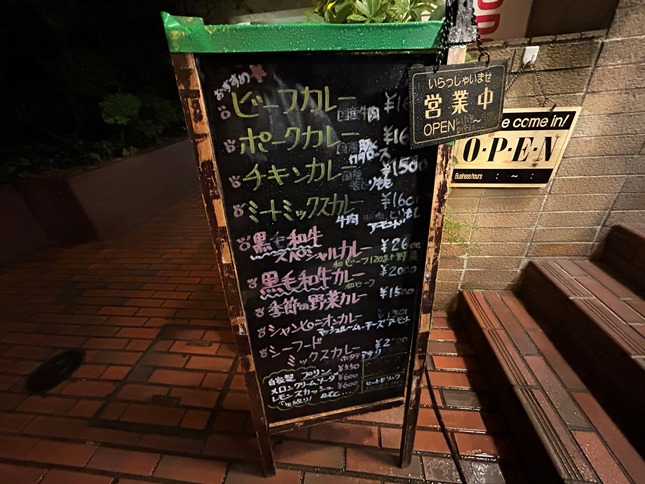 おすすめ
ビーフカレー 国産牛肉
ポークカレー
チキンカレー 国産 ¥1500
ミートミックスカレー ¥1600
牛肉
黒毛和牛
スペシャルカレー ¥2600
和ビーフ120g+野菜
黒毛和牛カレー ¥2000
和ビーフ
季節の野菜カレー ¥1500
シャンピニオンカレー
マッシュルーム・チーズ・アーモンド
シーフード
ミックスカレー
ホタテ アサリ
自家製 プリン ¥550
メロンクリームソーダ ¥600
レモンスカッシュ ¥600
セットドリンク
いらっしゃいませ
営業中
OPEN
come in!
O·P·E·N
Business hours : ~ :